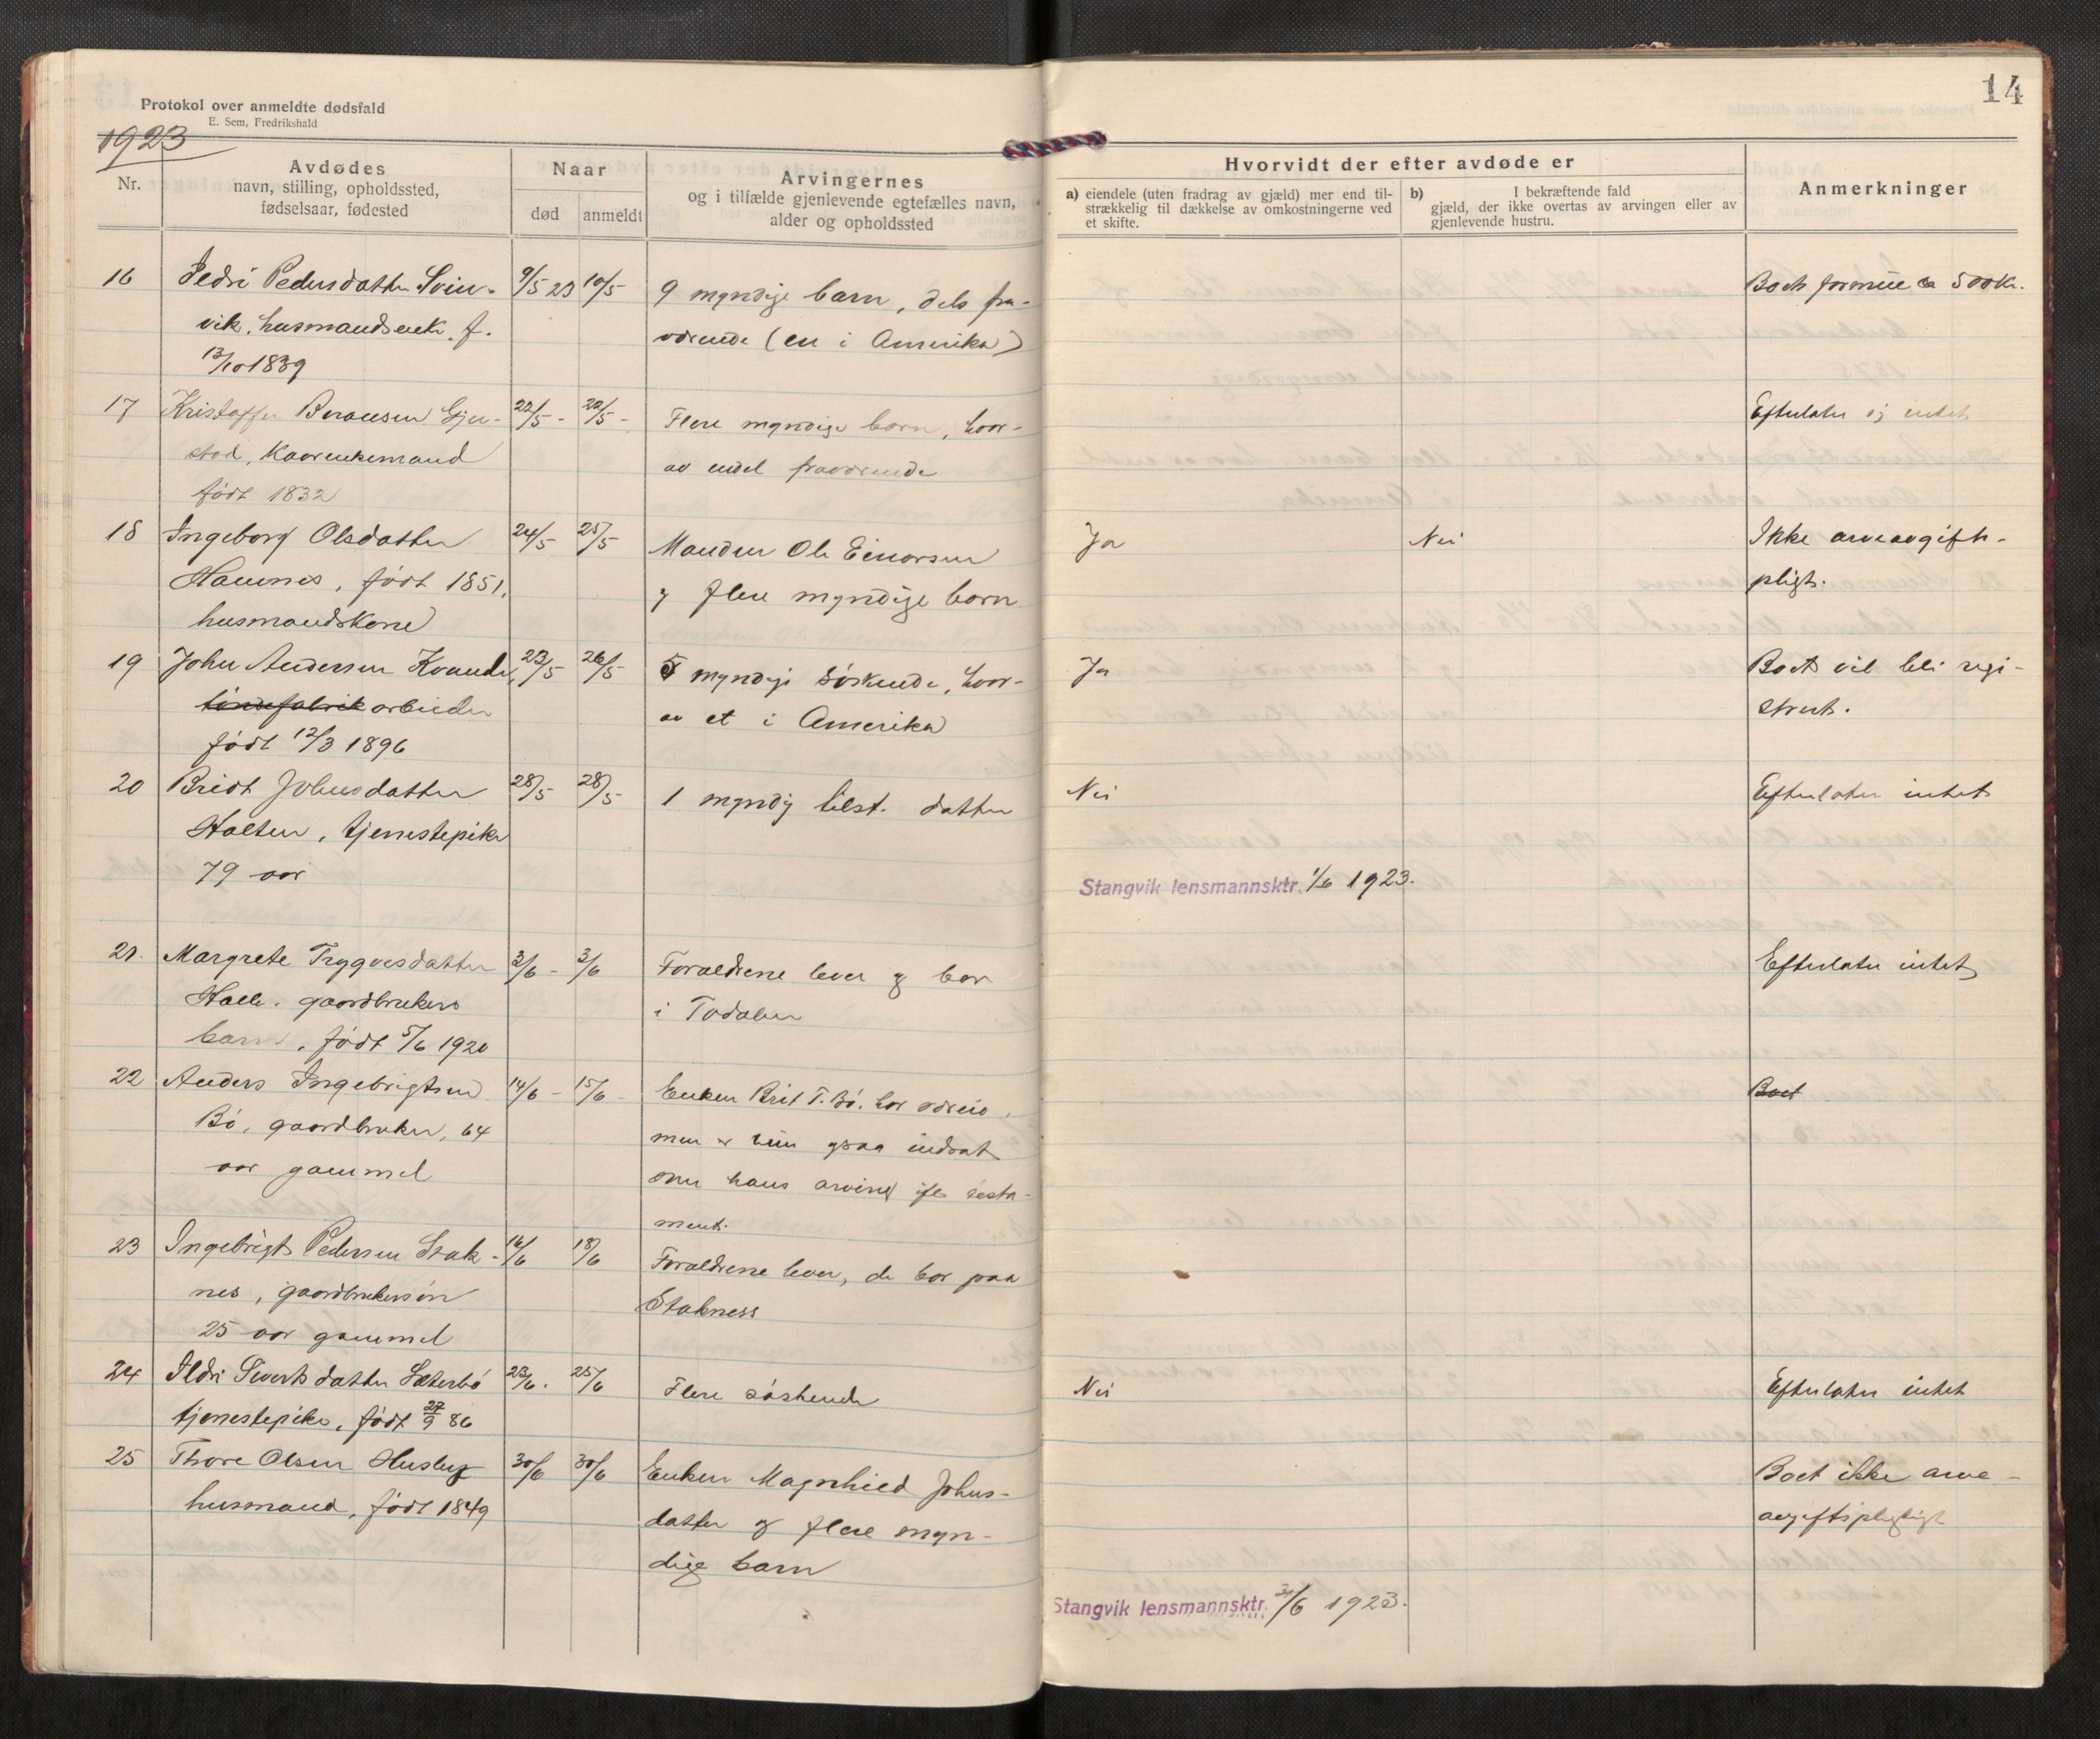 14
Protokol over anmeldte dødsfald
E. Sem, Fredrikshald
1923
Nr.
Avdødes
navn, stilling, opholdssted,
fødselsaar, fødested
Naar
død
anmeldt
Arvingernes
og i tilfælde gjenlevende egtefælles navn,
alder og opholdssted
Hvorvidt der efter avdøde er
a) eiendele (uten fradrag av gjæld) mer end til-
strækkelig til dækkelse av omkostningerne ved
et skifte.
b) I bekræftende fald
gjæld, der ikke overtas av arvingen eller av
gjenlevende hustru.
Anmerkninger
16 Ildri Pedersdatter Svin- 9/5 23 10/5 9 myndige barn, dels fra- Boets formue ca 500 Kr.
vik, husmandsenke. f. værende (en i Amerika)
13/10 1839
17 Kristoffer Gjer- 22/5 - 22/5 - Flere myndige barn, hvor- Efterlater sig intet
stad, Kaarenkemand av endel fraværende
født 1832
18 Ingeborg Olsdatter 24/5 25/5 Manden Ole Einarsen Ja Nei Ikke arveavgifts-
Hamnes, født 1851, og flere myndige barn pligt.
husmandskone
19 John Andersen Kvande, 23/5 26/5 5 myndige søskende, hvor- Ja Boet vil bli regi-
tøndefabrik arbeider av et i Amerika strert.
født 12/3 1896
20 Bridt Johnsdatter 28/5 28/5 1 myndig tilst. datter Nei Efterlater intet
Halten, tjenestepike
79 aar
Stangvik lensmannsktr. 1/6 1923.
21. Margrete Trygvesdatter 3/6 - 3/6 Forældrene lever og bor Efterlater intet
Halle. gaardbrukers i Todalen
barn, født 5/6 1920
22 Anders Ingebrigtsen 14/6 - 15/6 - Enken Brit T. Bø. Boet
Bø, gaardbruker, 64 men er hun ogsaa indsat
aar gammel som hans arving ifø testa-
ment.
23 Ingebrigt Pedersen Stak- 16/6 18/6 Forældrene lever, de bor paa
nes, gaardbrukersøn Stakness
25 aar gammel
24 Ildri Sivertsdatter Sæterbø 23/6. 25/6 Flere søskende Nei Efterlater intet
tjenestepike, født 27/9 86
25 Thore Olsen Husby 30/6 30/6 Enken Magnhild Johns- Boet ikke arve-
husmand, født 1849 datter og flere myn- avgiftspligtigt
dige barn
Stangvik lensmannsktr. 30/6 1923.